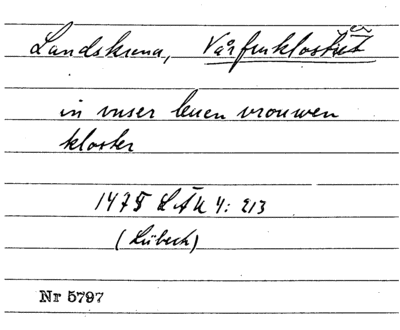 Landskrona, Vårfruklostret
in vnser leuen vrouwen
kloster
1475 LÄU 4: 213
(Lübeck)
Nr 5797